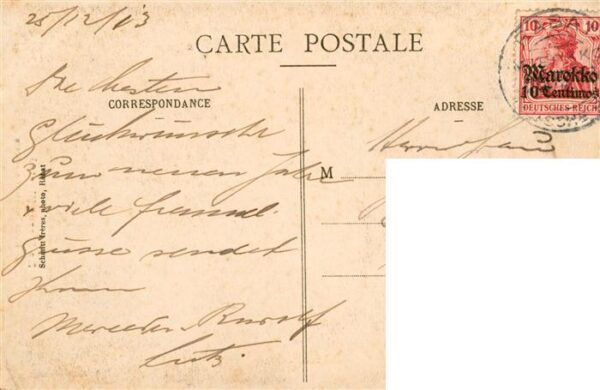 25/12/13
CARTE POSTALE
10 10
Marokko
10 Centimos
DEUTSCHES REICH
CORRESPONDANCE
ADRESSE
Die besten
Glückwünsche
zum neuen Jahre
& viele freundl.
Grüsse sendet
Ihnen
Rudolf
Herrn
M
Schmitt frères, photo, Rabat